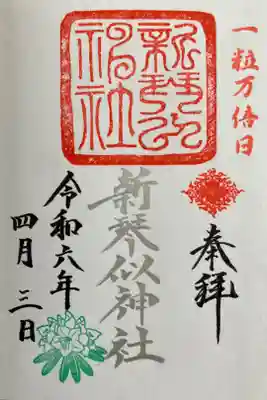 一粒万倍日
奉拝
新琴似神社
令和六年
四月三日